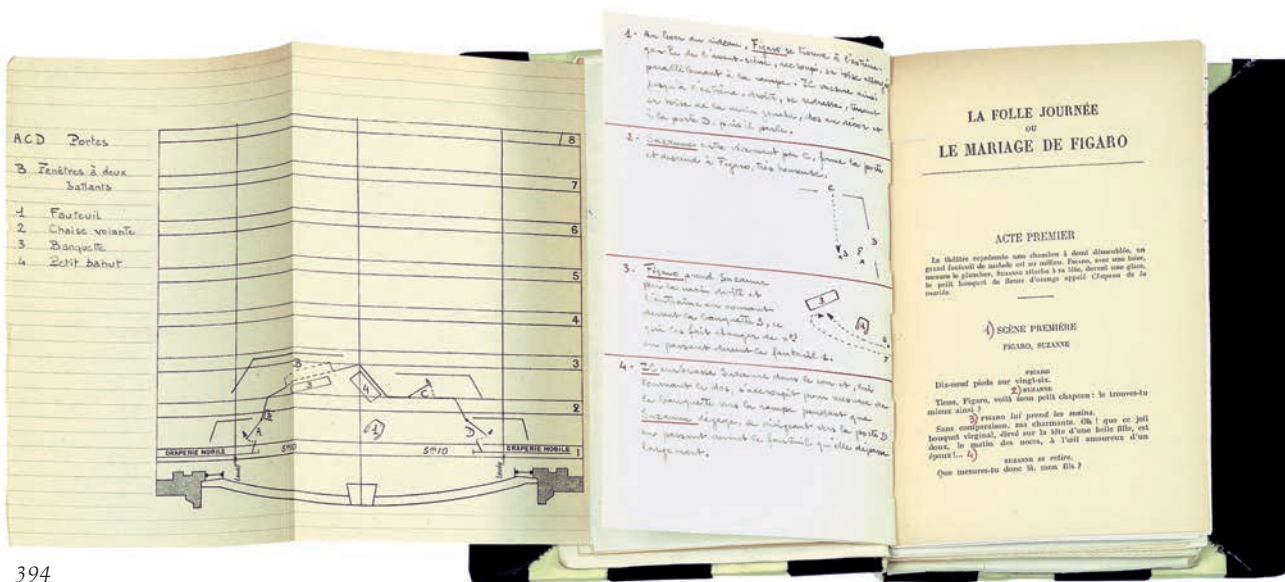 ACD Portes
B Fenêtres à deux
battants
1 Fauteuil
2 Chaise volante
3 Banquette
4 Petit bahut
8
7
6
5
4
3
2
1
B
3
4
C
A
1
D
DRAPERIE MOBILE
5m10
5m10
DRAPERIE MOBILE
1- Au lever du rideau, Figaro se trouve à l'extrême
de l'avant-scène, accroupi, sa toise allongée
parallèlement à la rampe. Il mesure ainsi
jusqu'à l'extrême droite, se redresse, tenant
sa toise de la main gauche, dos au décor et
à la porte D. puis il parle.
2- Suzanne entre vivement par C, ferme la porte
et descend à Figaro, très heureuse.
C
S
F
A
D
3. Figaro prend Suzanne
par la main droite et
l'entraîne en courant
devant la banquette 3, ce
qui les fait changer de n°
en passant devant le fauteuil 1.
3
1
4- Il embrasse Suzanne dans le cou et, lui
tournant le dos, s'accroupit pour mesurer de
la banquette vers la rampe pendant que
Suzanne dégage, se dirigeant vers la porte D
en passant devant le fauteuil qu'elle dépasse
largement.
LA FOLLE JOURNÉE
OU
LE MARIAGE DE FIGARO
ACTE PREMIER
Le théâtre représente une chambre à demi démeublée, un
grand fauteuil de malade est au milieu. FIGARO, avec une toise,
mesure le plancher. SUZANNE attache à sa tête, devant une glace,
le petit bouquet de fleurs d'orange appelé Chapeau de la
mariée.
1) SCÈNE PREMIÈRE
FIGARO, SUZANNE
FIGARO
Dix-neuf pieds sur vingt-six.
2) SUZANNE
Tiens, Figaro, voilà mon petit chapeau : le trouves-tu
mieux ainsi ?
3) FIGARO lui prend les mains.
Sans comparaison, ma charmante. Oh ! que ce joli
bouquet virginal, élevé sur la tête d'une belle fille, est
doux, le matin des noces, à l'œil amoureux d'un
époux !... 4)
SUZANNE se retire.
Que mesures-tu donc là, mon fils ?
394